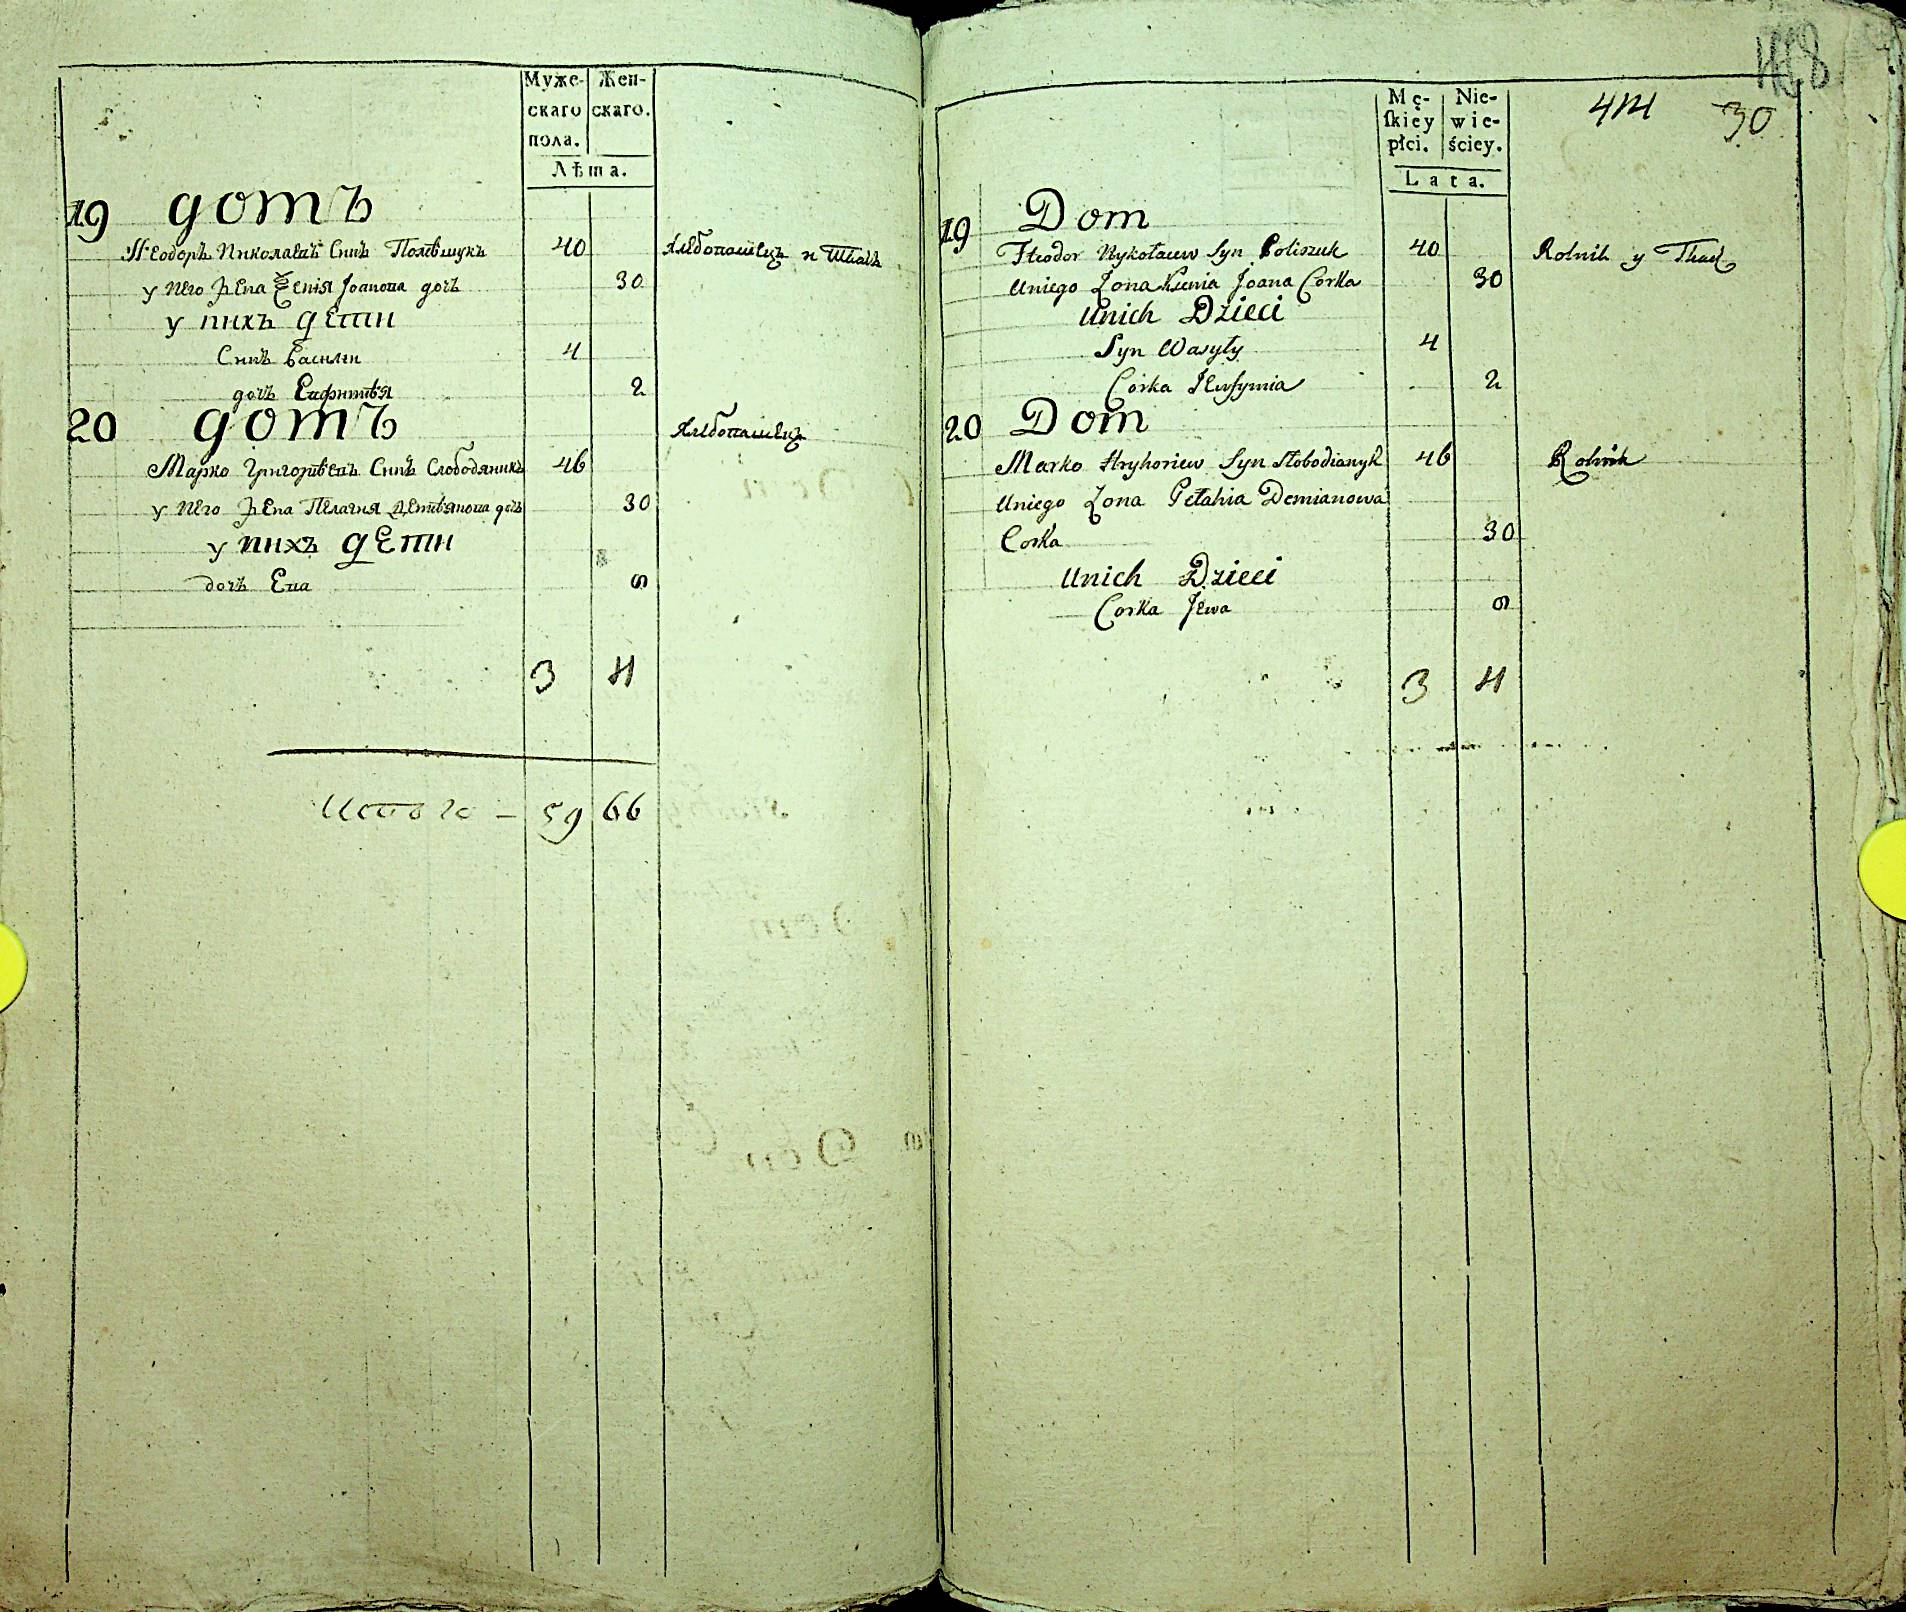 Муже-
скаго
пола.
Жен-
скаго.
Лѣта.
19 домъ
Ѳеодоръ Николаевъ Синъ Полѣшукъ 40 Хлебопашецъ и Ткачъ
у него жена Ѯенія Іоанова дочъ 30
у нихъ дети
Синъ Василии 4
дочъ Евфимѣя 2
20 домъ Хлебопашецъ
Марко Григорѣевъ Синъ Слободяникъ 46
у него жена Пелагия Демѣянова дочъ 30
у нихъ дети
дочъ Ева 6
3 4
Итого — 59 66
Mę-
ſkiey
płci.
Nie-
wie-
ściey.
Lata.
414 30
19 Dom
Fteodor Nykołaiew Syn Poliszuk 40 Rolnik y Tkacz
Uniego Żona Ksenia Joana Corka 30
Unich Dzieci
Syn Wasyły 4
Corka Jewfymia 2
20 Dom
Marko Hryhoriew Syn Słobodianyk 46 Rolnik
Uniego Żona Pełahia Demianowa
Corka 30
Unich Dzieci
Corka Jewa 6
3 4